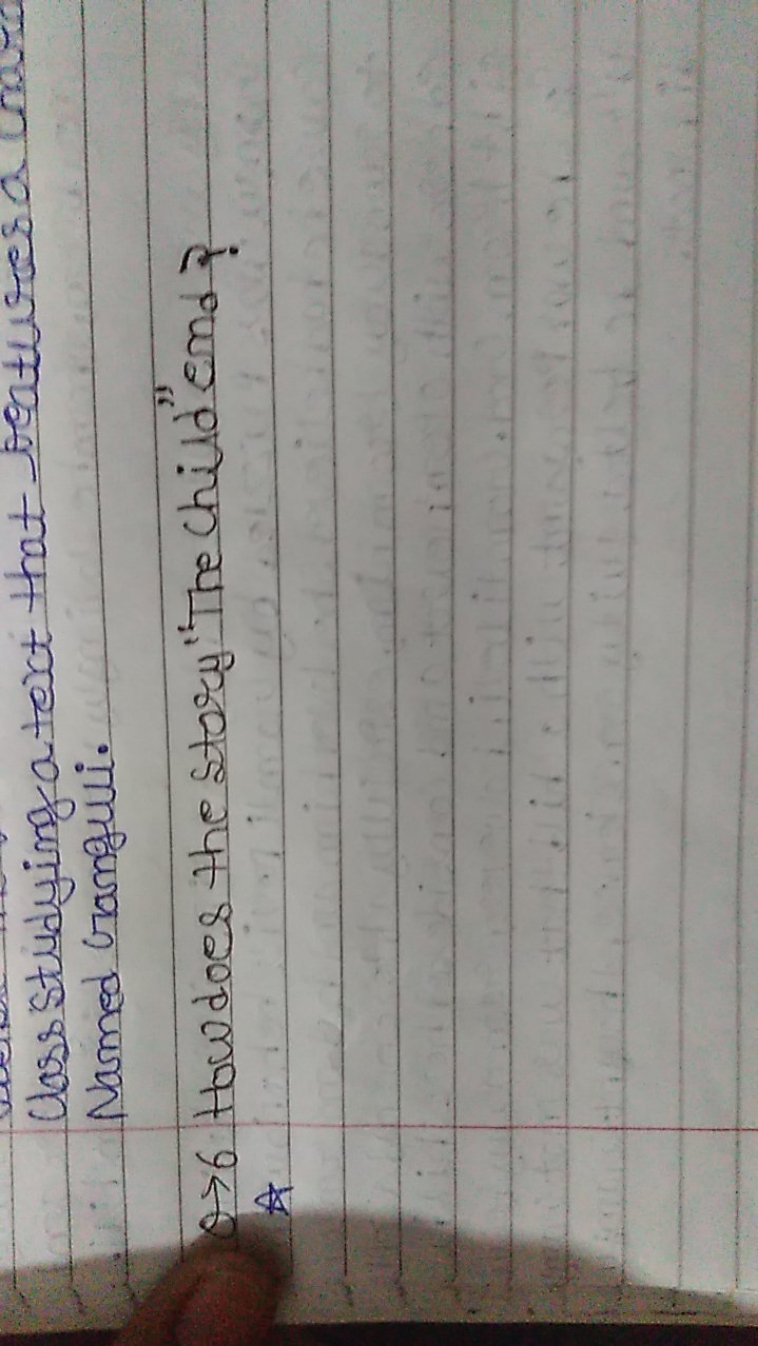 Class Studying a text that features a
Named Ganguli.
Q>6 How does the story "The Child" end?